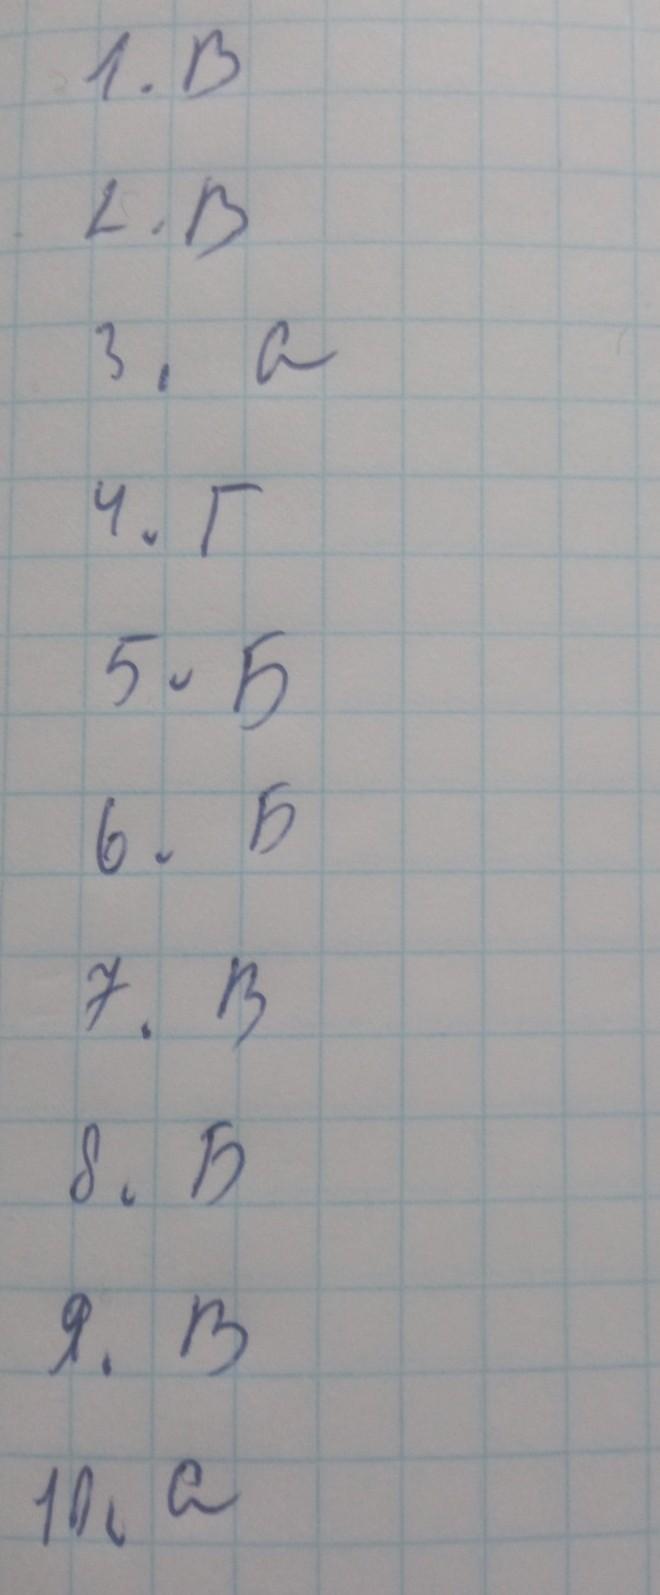 1. В
2. В
3. а
4. Г
5. Б
6. Б
7. В
8. Б
9. В
10. а